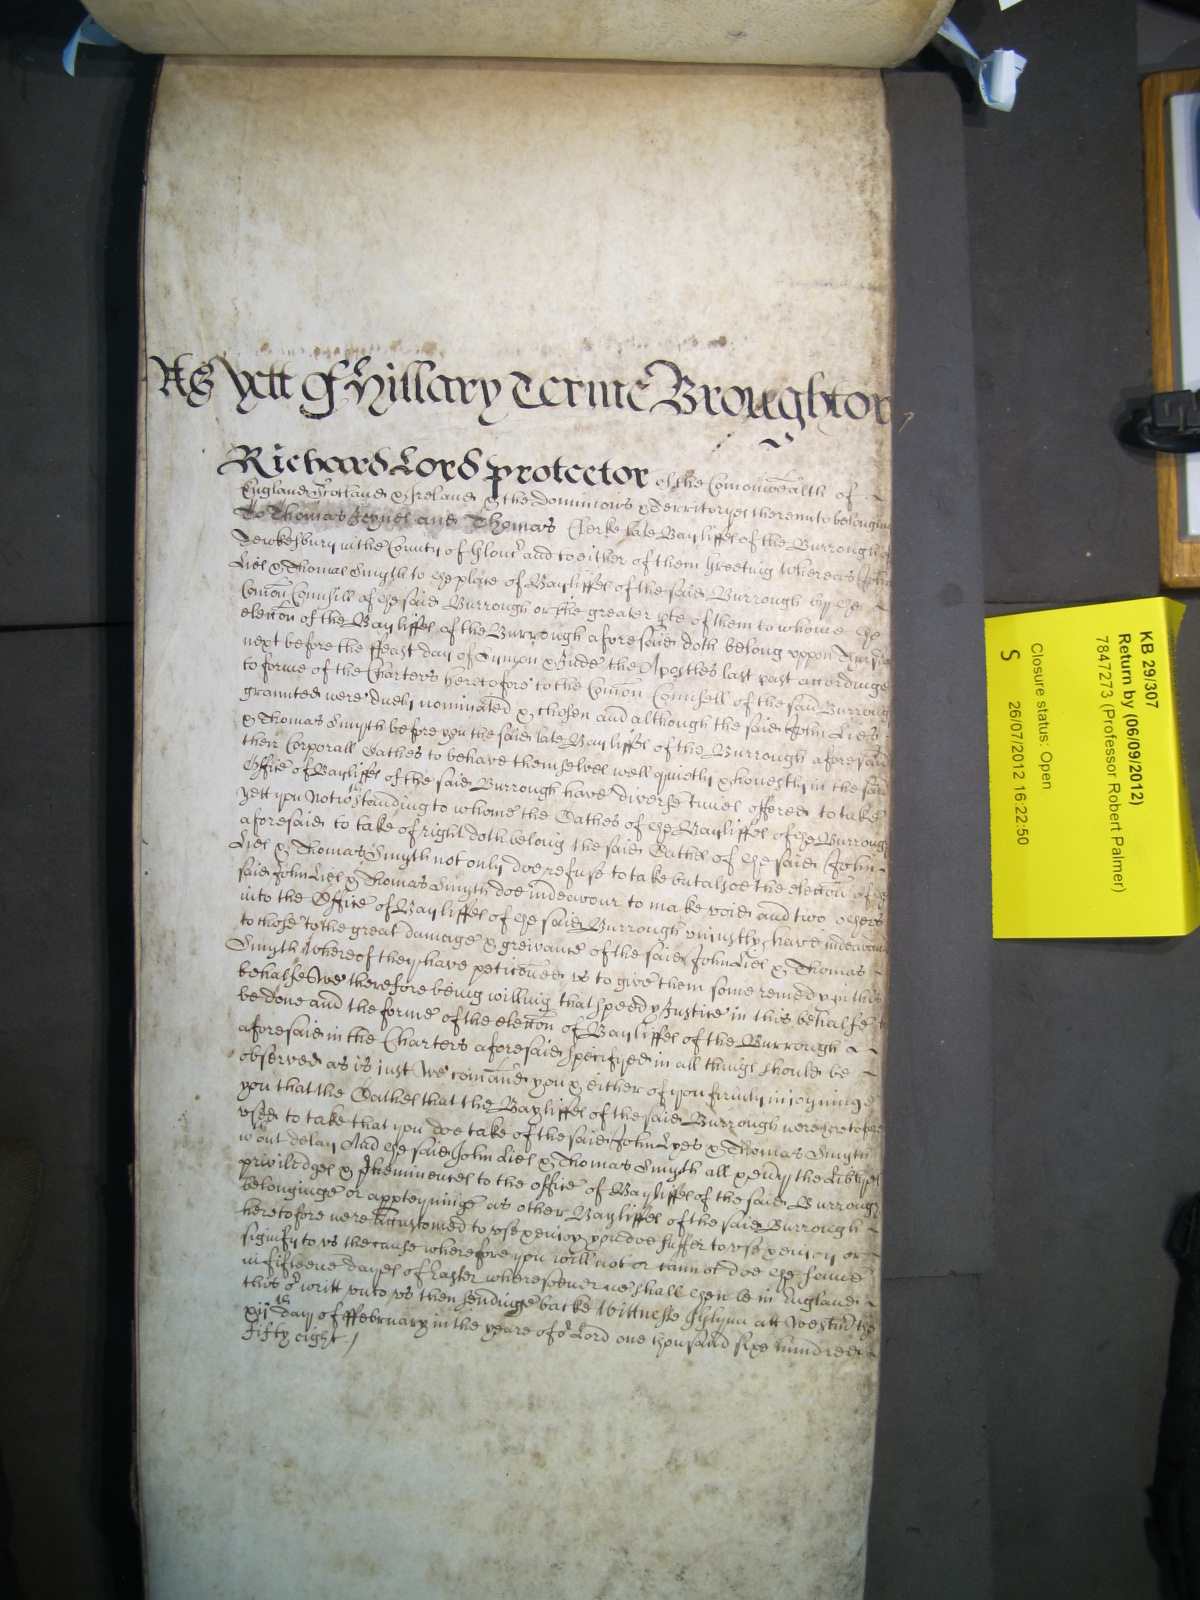 As yett of Hillary Terme Broughton
Richard Lord protector of the Comonwealth of
England Scotland & Ireland & the dominions & territoryes thereunto belonging
To Thomas Jeynes and Thomas Clerke late Bayliffes of the Burrough of
Tewkesbury in the County of Glouc and to either of them Greeting Whereas John
Lies & Thomas Smyth to the place of Bayliffes of the said Burrough by the
Comon Counsill of the said Burrough or the greater pte of them to whome the
eleccon of the Bayliffes of the Burrough aforesaid doth belong uppon Thursday
next before the ffeast day of Symon & Jude the Apostles last past accordinge
to forme of the Charters heretofore to the Comon Counsell of the said Burrough
graunted were duely nominated & chosen and although the said John Lies
& Thomas Smyth before you the said late Bayliffes of the Burrough aforesaid
their Corporall Oathes to behave themselves well quietly & honestly in the said
Office of Bayliffes of the said Burrough have diverse times offered to take
yett you notwthstanding to whome the Oathes of the Bayliffes of the Burrough
aforesaid to take of right doth belong the said Oathes of the said John
Lies & Thomas Smyth not only doe refuse to take but alsoe the eleccon of the
said John Lies & Thomas Smyth doe indeavour to make void and two others
into the Office of Bayliffes of the said Burrough uniustly have indeavoured
to those to the great damage & greivance of the said John Lies & Thomas
Smyth Whereof they have peticoned us to give them some remedy in this
behalfe We therefore being willing that speedy Justice in this behalfe to
be done and the forme of the eleccon of Bayliffes of the Burrough
aforesaid in the Charters aforesaid specifyed in all things should be
observed as is just We comand you & either of you firmly injoyninge
you that the Oathes that the Bayliffes of the said Burrough were heretofore
used to take that you doe take of the said John Lyes & Thomas Smyth
wthout delay And the said John Lies & Thomas Smyth all & every the Libtyes
priviledges & pheminences to the office of Bayliffes of the said Burrough
belonginge or appteyninge as other Bayliffes of the said Burrough
heretofore were accustomed to use & enjoy you doe suffer to use & enjoy or
signify to us the cause wherefore you will not or cannot doe the same
in fifteene dayes of Easter wheresoever we shall then be in England
this or writt unto us then sending backe Wittnesse Glynn att Westmr the
xijth day of ffebruary in the yeare of or Lord one thousand sixe hundred
fifty eight /
KB 29/307
Return by (06/09/2012)
7847273 (Professor Robert Palmer)
Closure status: Open
S 26/07/2012 16:22:50